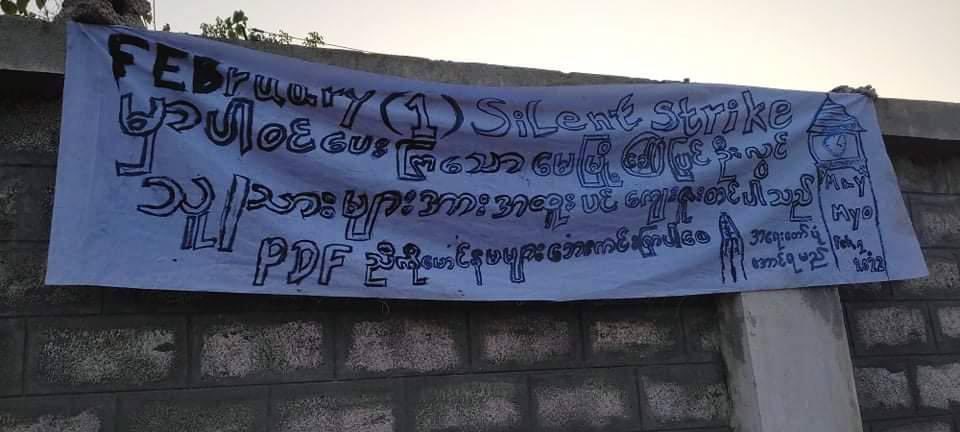 FEBruary (1) SiLent Strike
မှာပါဝင်ပေးကြသော မေမြို့ ပြင်ဦးလွင်
သူ/သားများအားအထူးပင် ကျေးဇူးတင်ပါသည်
PDF ညီကိုမောင်နှမများဘေးကင်းကြပါစေ
အရေးတော်ပုံ
အောင်ရမည်
May
Myo
Feb,1,
2022